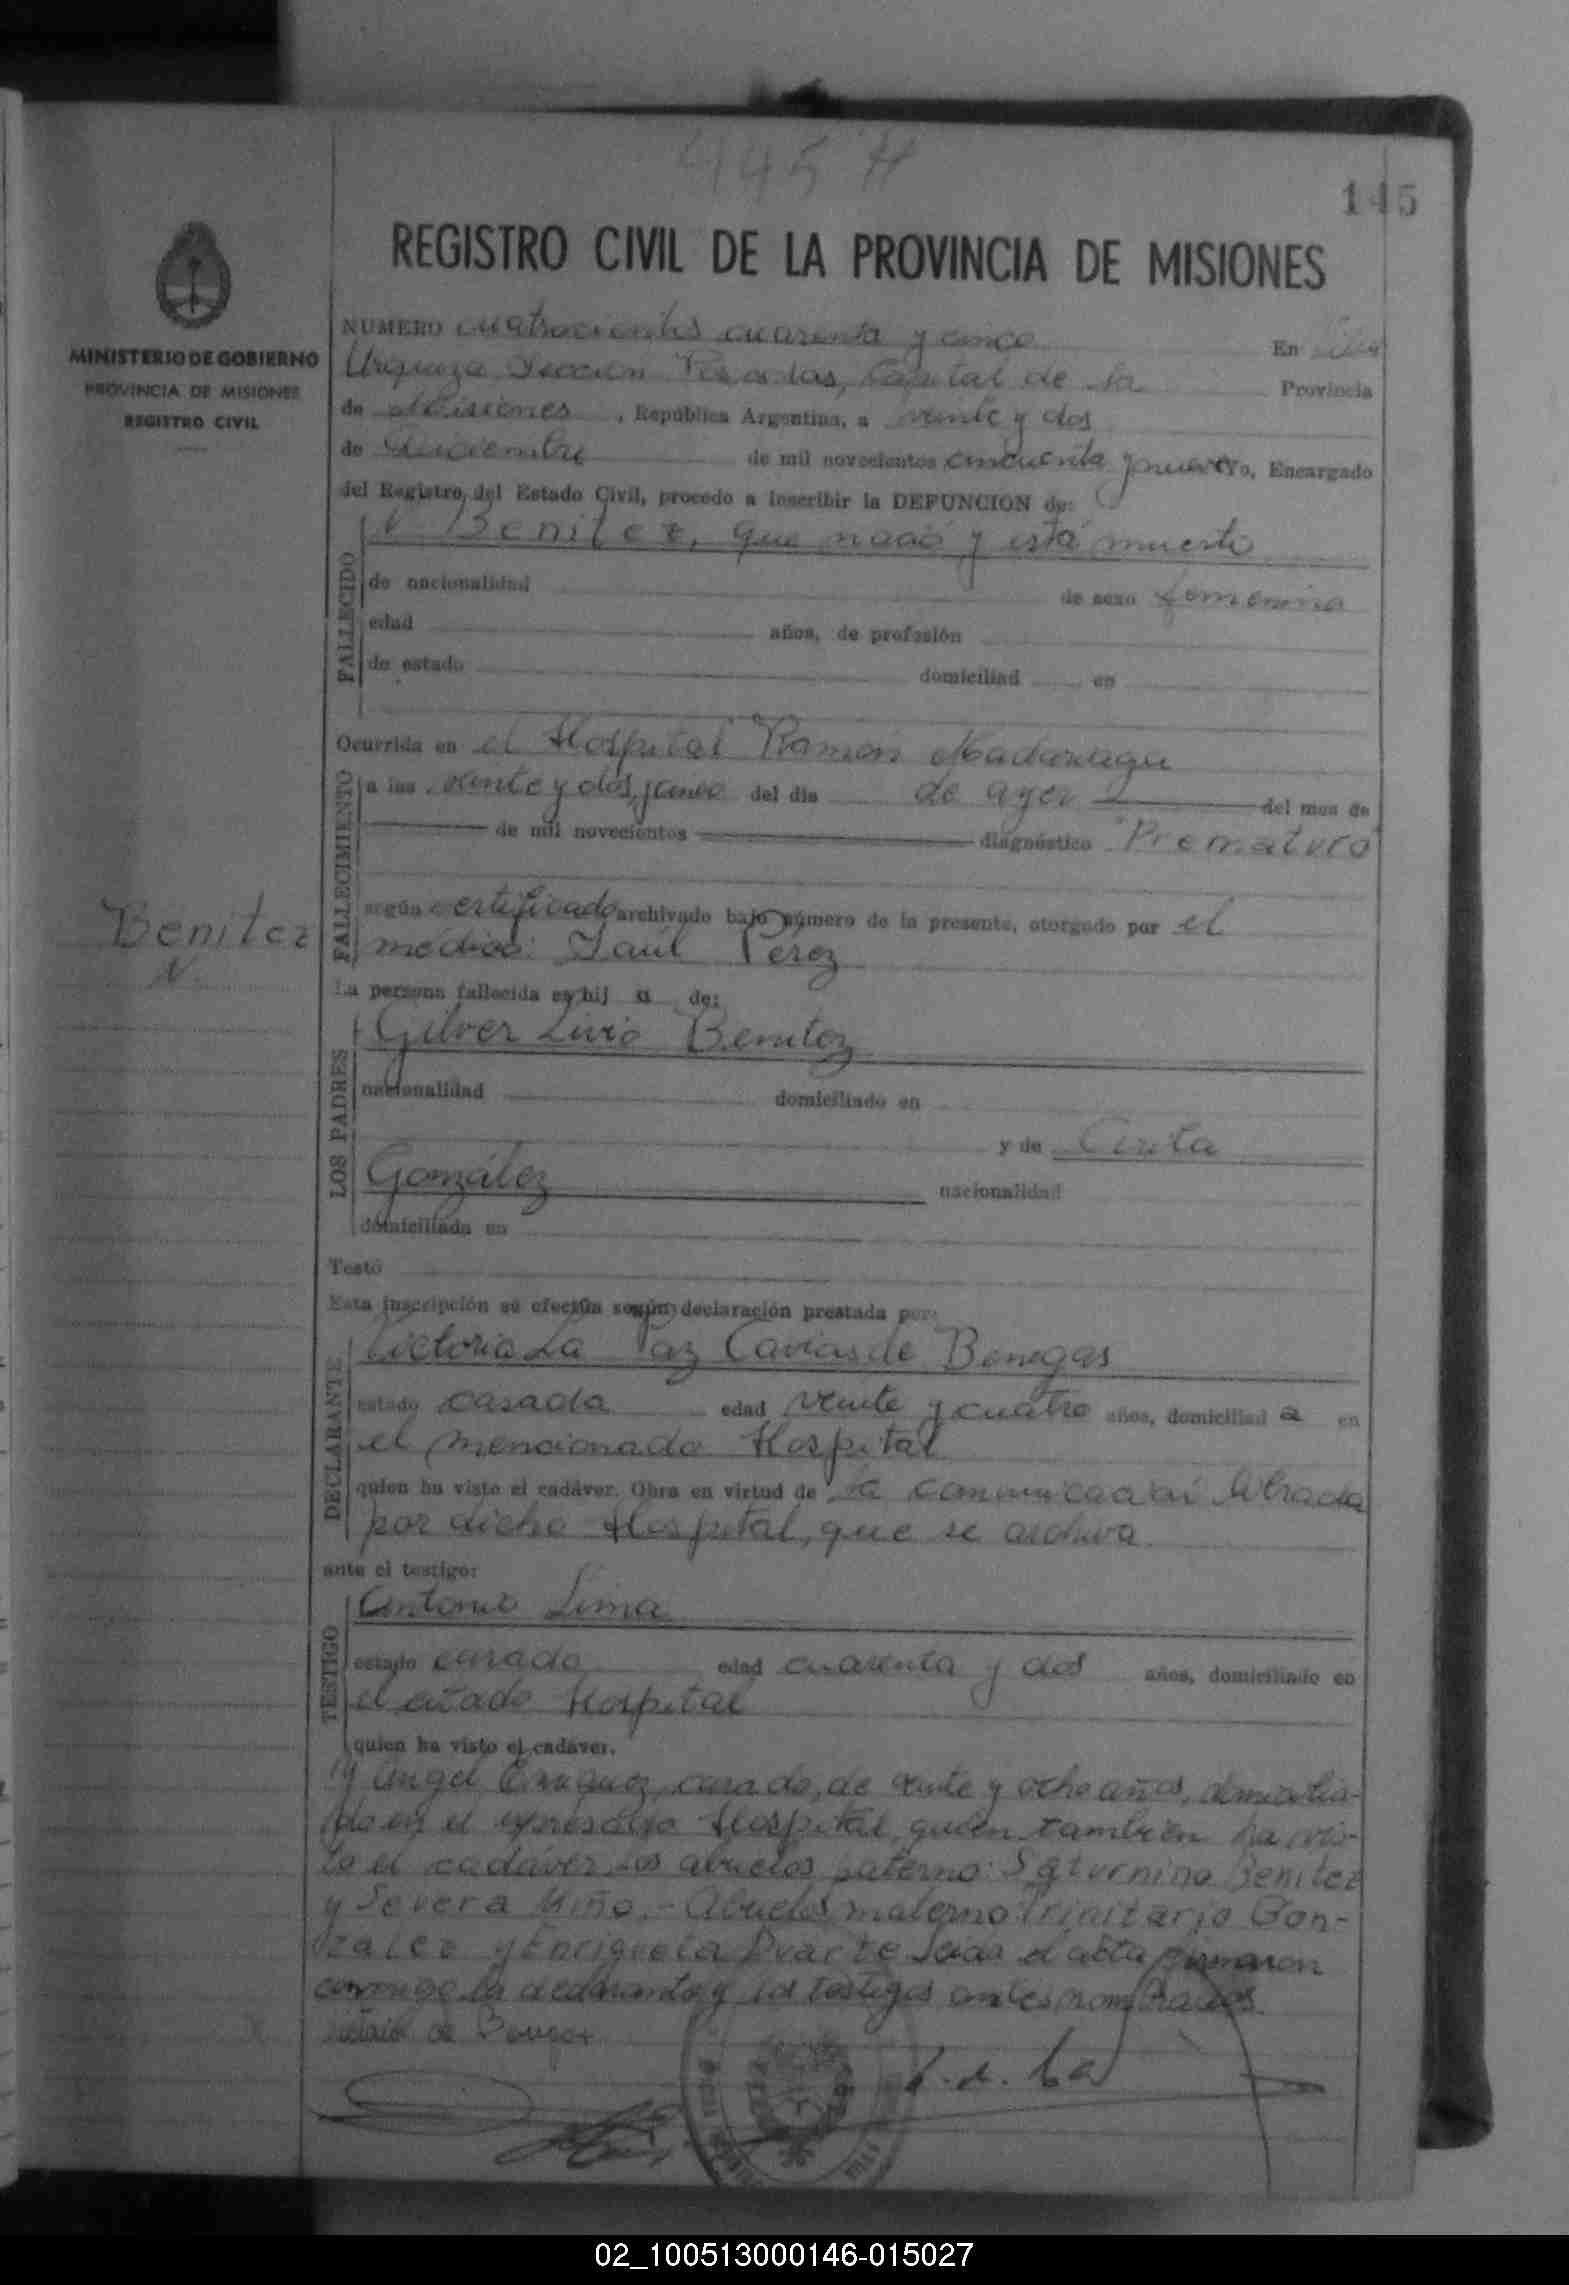 445 H
145
REGISTRO CIVIL DE LA PROVINCIA DE MISIONES
MINISTERIO DE GOBIERNO
PROVINCIA DE MISIONES
REGISTRO CIVIL
NUMERO cuatrocientos cuarenta y cinco En Villa
Urquiza Sección Posadas, Capital de la Provincia
de Misiones, República Argentina, a veinte y dos
de Diciembre de mil novecientos cincuenta y nueve Yo, Encargado
del Registro del Estado Civil, procedo a inscribir la DEFUNCION de:
FALLECIDO
N Benitez, que nació y está muerto
de nacionalidad de sexo femenino
edad años, de profesión
de estado domiciliad en
Ocurrida en el Hospital Ramón Madariaga
FALLECIMIENTO
a las veinte y dos y cinco del dia de ayer del mes de
de mil novecientos diagnóstico "Prematuro"
según certificado archivado bajo número de la presente, otorgado por el
médico: Saúl Pérez
Benitez
N.
La persona fallecida es hij a de:
LOS PADRES
Gilver Livio Benitez
nacionalidad domiciliado en
y de
González nacionalidad
domiciliada en
Testó
Esta inscripción se efectúa según declaración prestada por:
DECLARANTE
Victoria La Paz de Benegas
estado casada edad veinte y cuatro años, domiciliad a en
el mencionado Hospital
quien ha visto el cadáver. Obra en virtud de la librada
por dicho Hospital, que se archiva.
ante el testigo:
TESTIGO
Antonio Lima
estado casado edad cuarenta y dos años, domiciliado en
el citado Hospital
quien ha visto el cadáver.
Y Angel casado, de veinte y ocho años, domicilia-
do en el expresado Hospital, quien también ha vis-
to el cadáver. Los abuelos paterno: Saturnino Benitez
y Severa Miño.- Abuelos materno Trinitario Gon-
zalez y Enriqueta Duarte el acta firmaron
conmigo la declarante y los testigos antes nombrados.
de
02_100513000146-015027